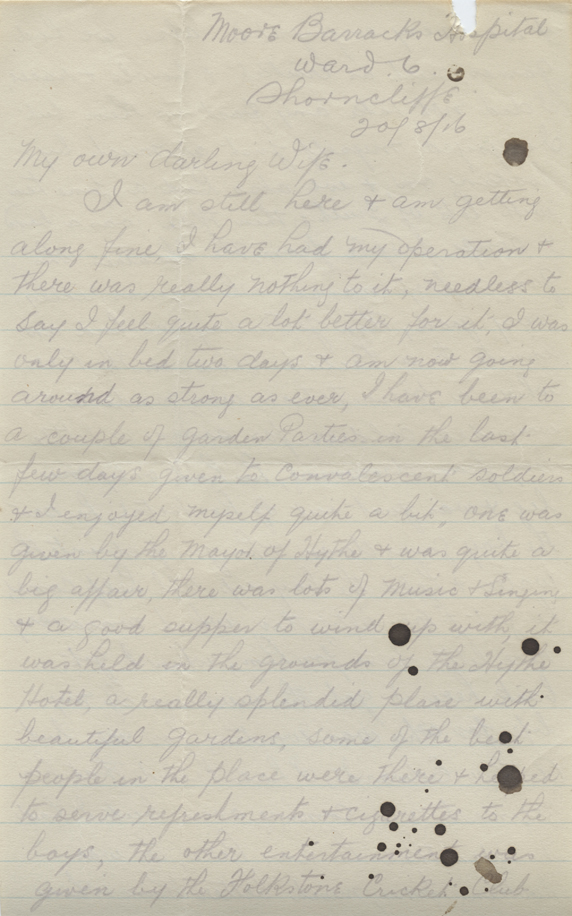 Moore Barracks Hospital
Ward 6.
Shorncliffe
20/8/16
My own darling Wife.
I am still here & am getting
along fine, I have had my operation &
there was really nothing to it, needless to
say I feel quite a lot better for it, I was
only in bed two days & am now going
around as strong as ever, I have been to
a couple of garden Parties in the last
few days given to Convalescent soldiers
& I enjoyed myself quite a bit, one was
given by the Mayor of Hythe & was quite a
big affair, there was lots of Music & Singin
& a good supper to wind up with, it
was held in the grounds of the Hythe
Hotel, a really splendid place with
beautiful gardens, some of the best
people in the place were there & helped
to serve refreshments & cigarettes to the
boys, the other entertainment was
given by the Folkstone Cricket Club